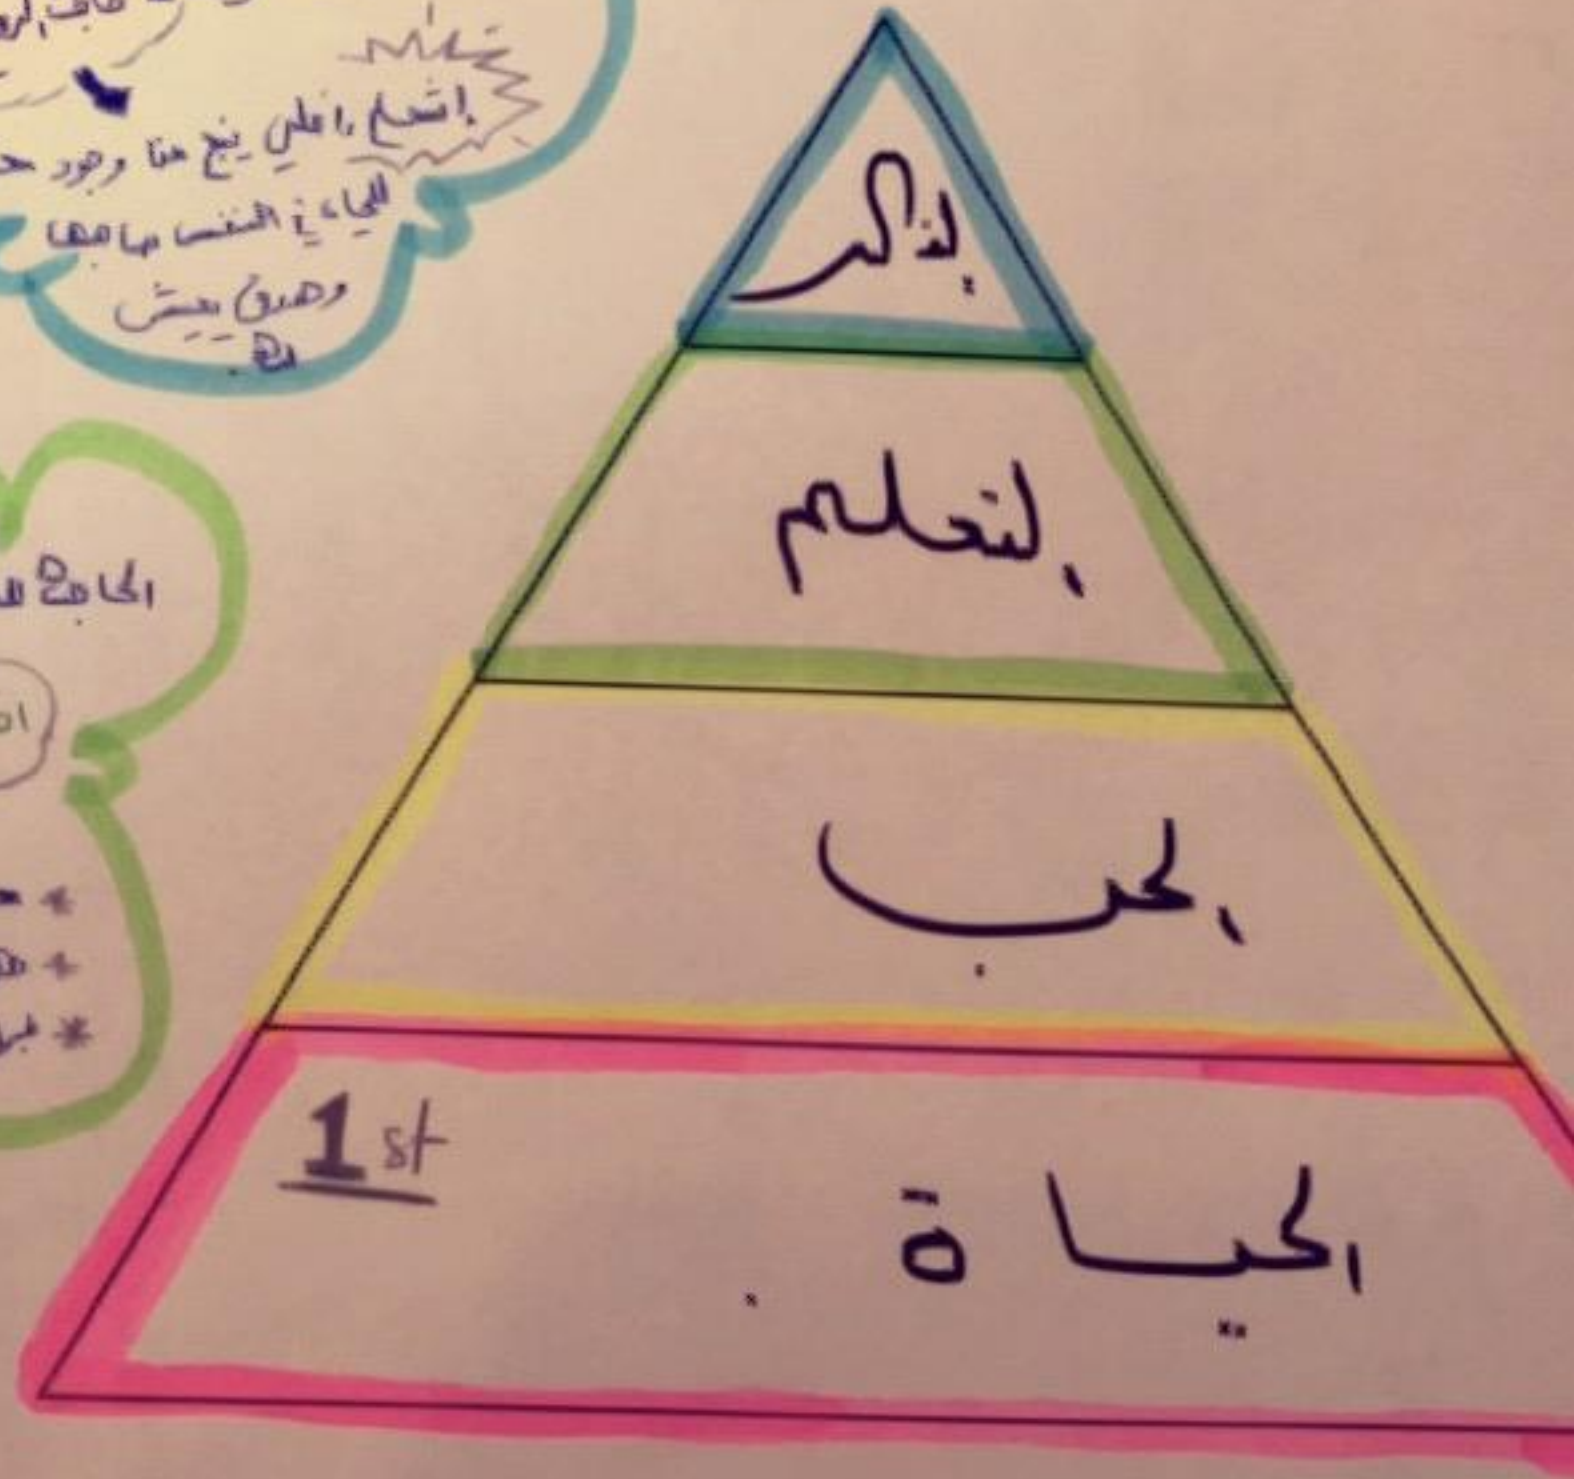 إشعاع داخلي ينتج وجود
للحياة في النفس صاحبها
وهدف يعيش
له.
الحاجة
الذكر
التعلم
الحب
1st
الحياة